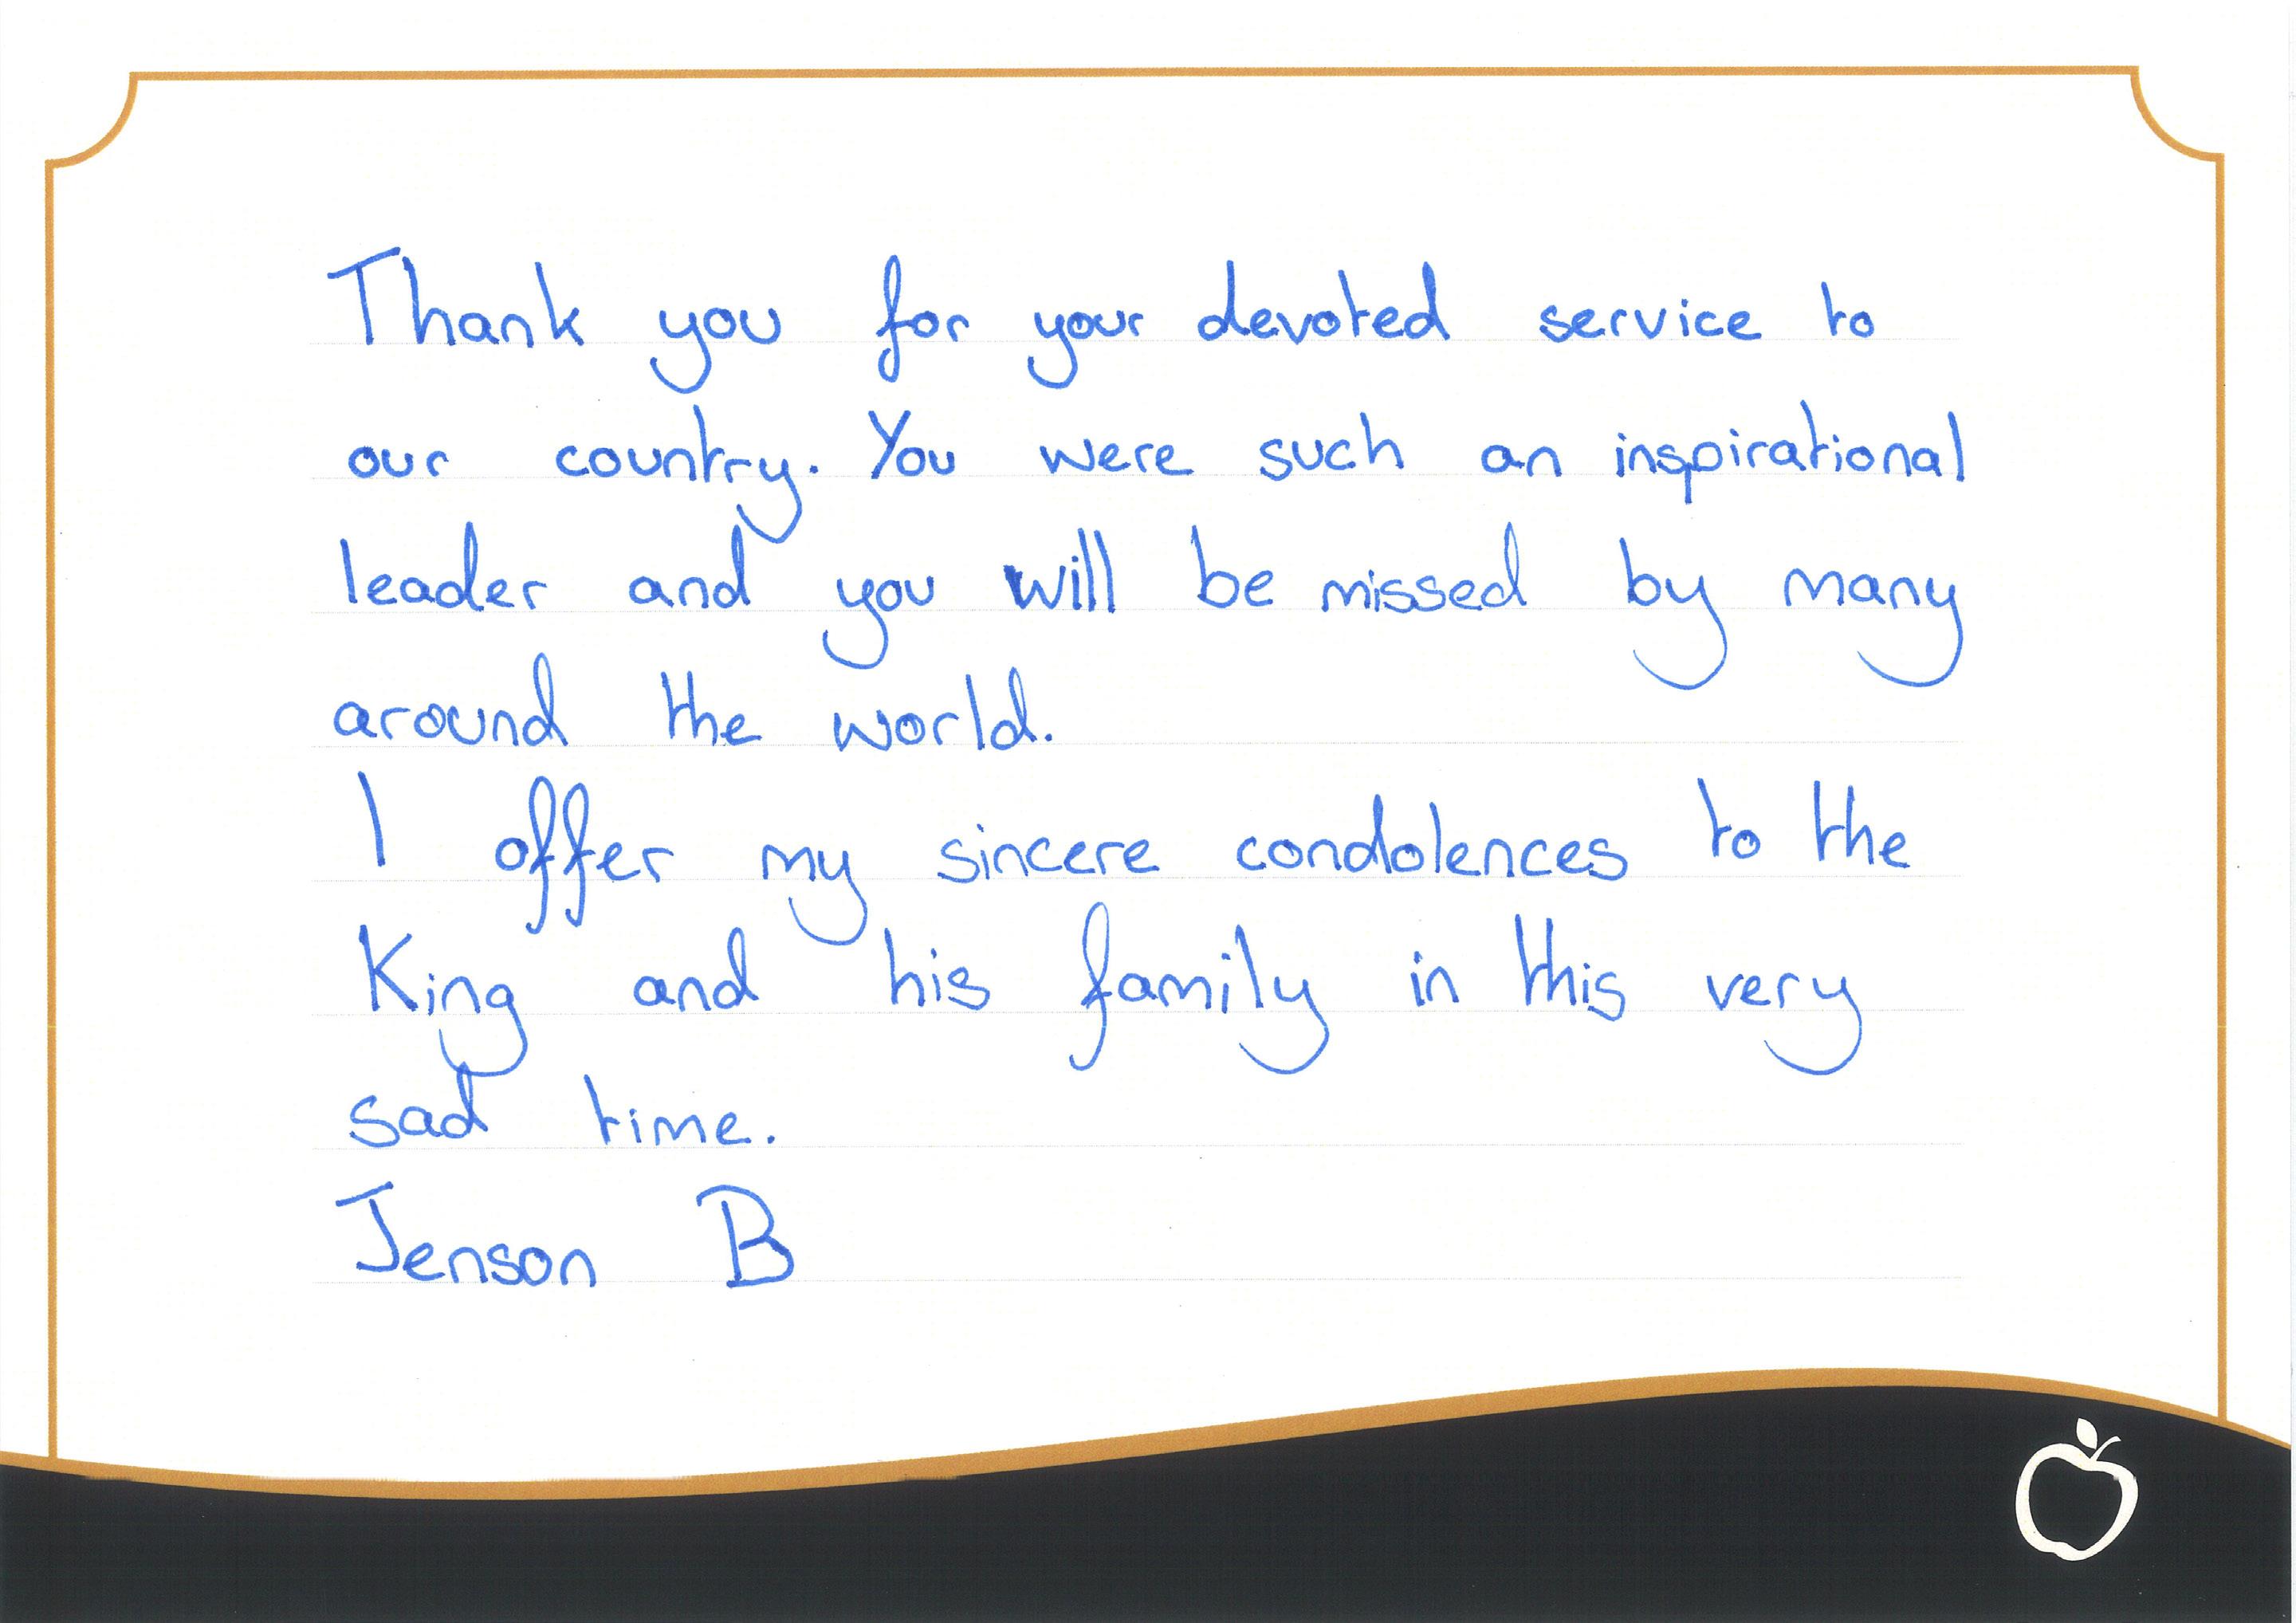 Thank you for your devoted service to
our country. You were such an inspirational
leader and you will be missed by many
around the world.
I offer my sincere condolences to the
King and his family in this very
sad time.
Jenson B